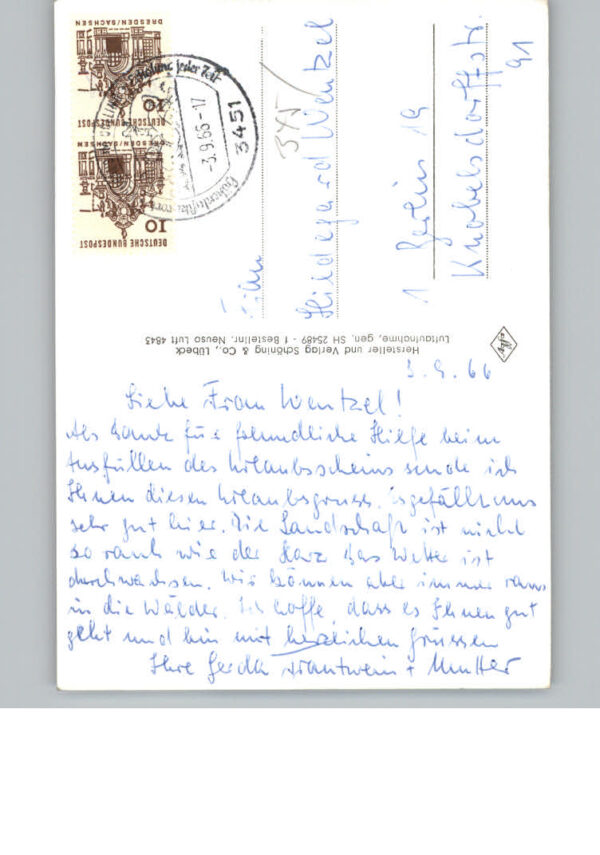 DRESDEN/SACHSEN
10
DEUTSCHE BUNDESPOST
DRESDEN/SACHSEN
10
DEUTSCHE BUNDESPOST
jeder Zeit
-3.9.66-17
3451
Hildegard Wentzel
1 Berlin 19
Knobelsdorffstr.
91
Hersteller und Verlag Schöning & Co., Lübeck
Luftaufnahme, gen. SH 25489 - 1 Bestellnr. Neuso Luft 4843
3.9.66
Liebe Frau Wentzel!
Als Dank für freundliche Hilfe beim
Ausfüllen des Urlaubsscheins sende ich
Ihnen diesen Urlaubsgruss. Es gefällt uns
sehr gut hier. Die Landschaft ist nicht
so rauh wie der Harz Das Wetter ist
durchwachsen. Wir können aber immer raus
in die Wälder. Ich hoffe, dass es Ihnen gut
geht und bin mit herzlichen Grüssen
Ihre Gerda Trautwein + Mutter